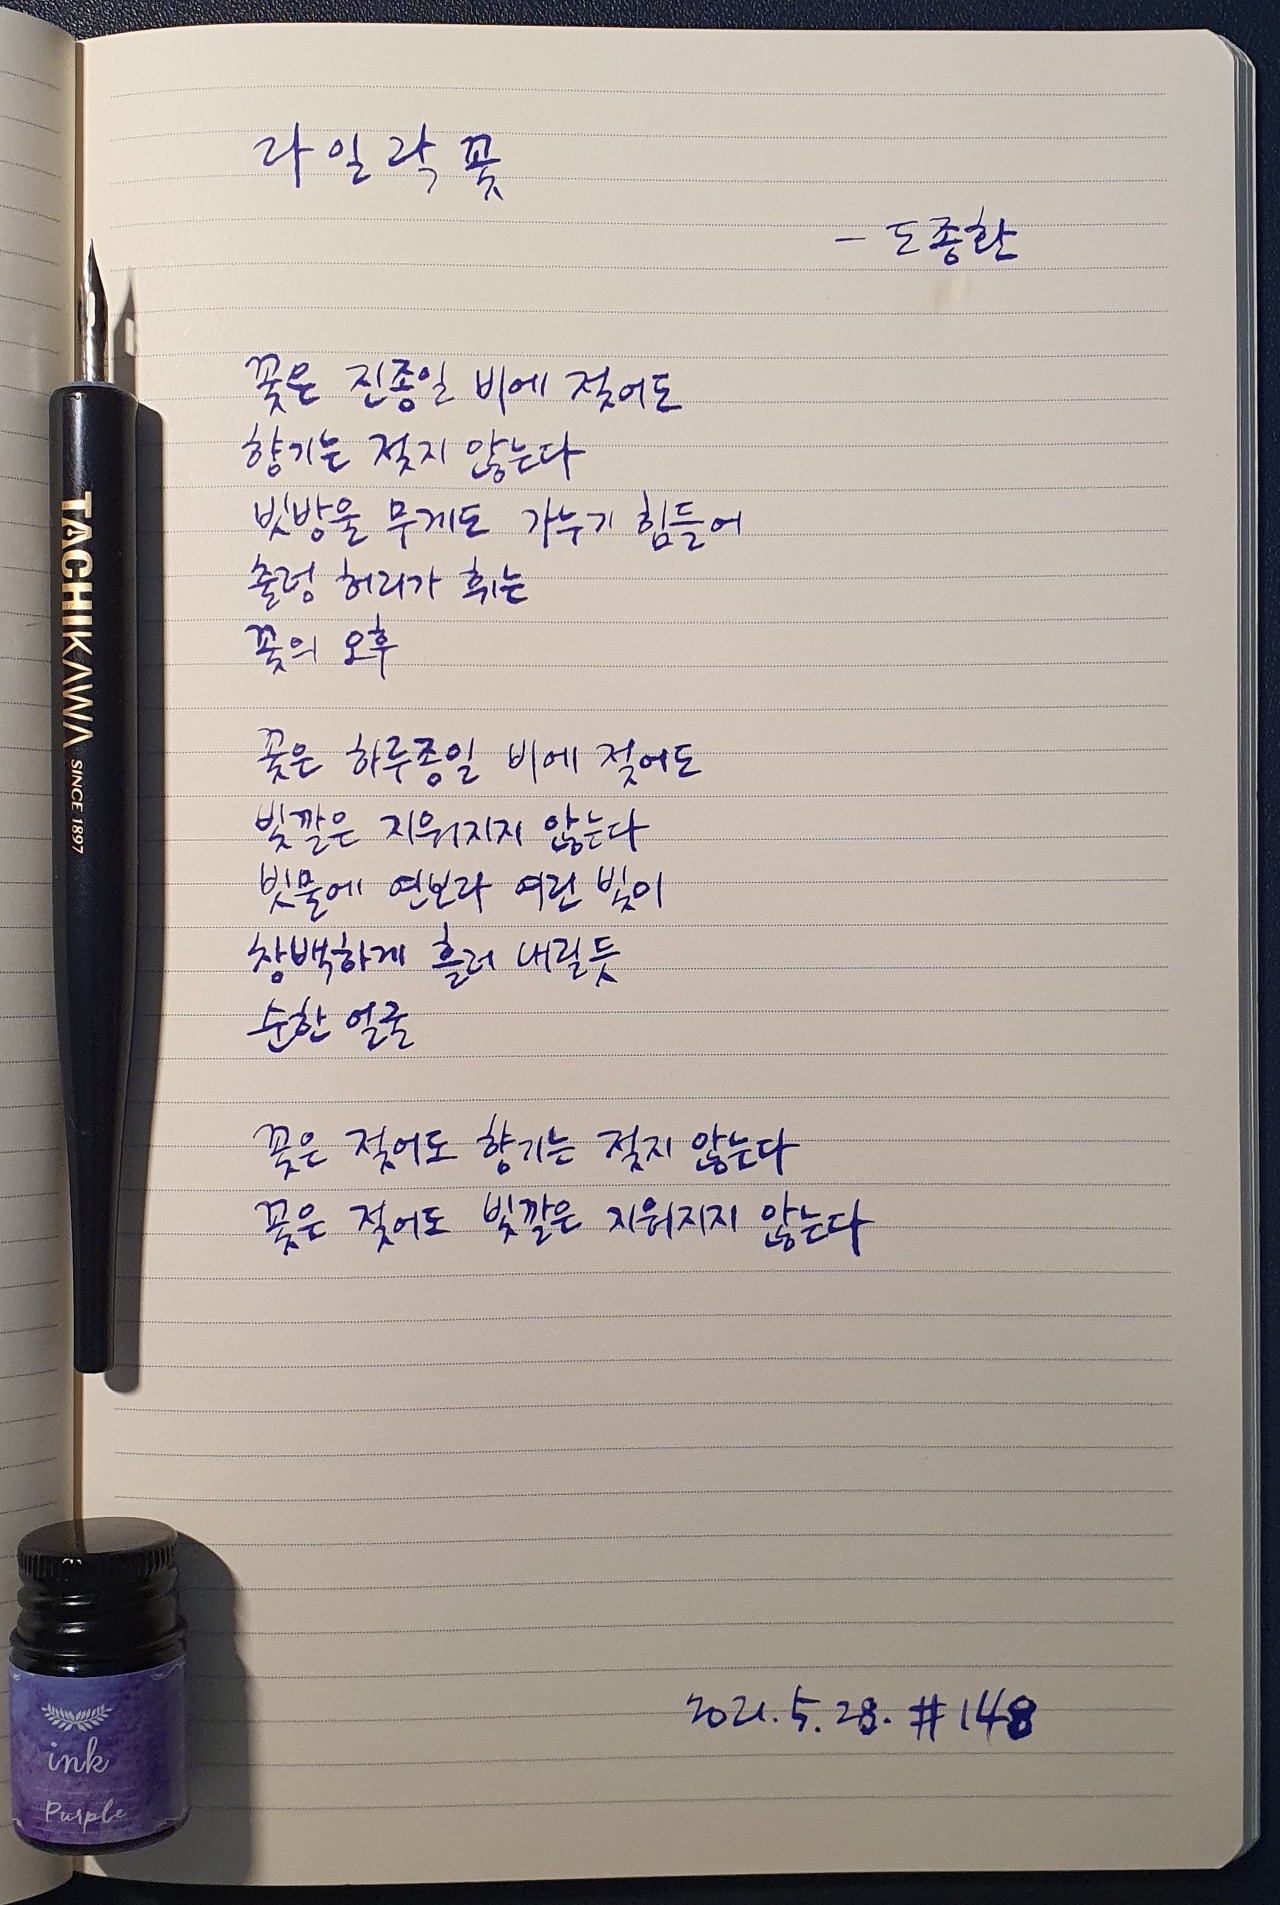 라일락꽃
- 도종환
꽃은 진종일 비에 젖어도
향기는 젖지 않는다
빗방울 무게도 가누기 힘들어
출렁 허리가 휘는
꽃의 오후
꽃은 하루종일 비에 젖어도
빛깔은 지워지지 않는다
빗물에 연보라 여린 빛이
창백하게 흘러 내릴듯
순한 얼굴
꽃은 젖어도 향기는 젖지 않는다
꽃은 젖어도 빛깔은 지워지지 않는다
2021. 5. 28. #148
TACHIKAWA SINCE 1897
ink
Purple